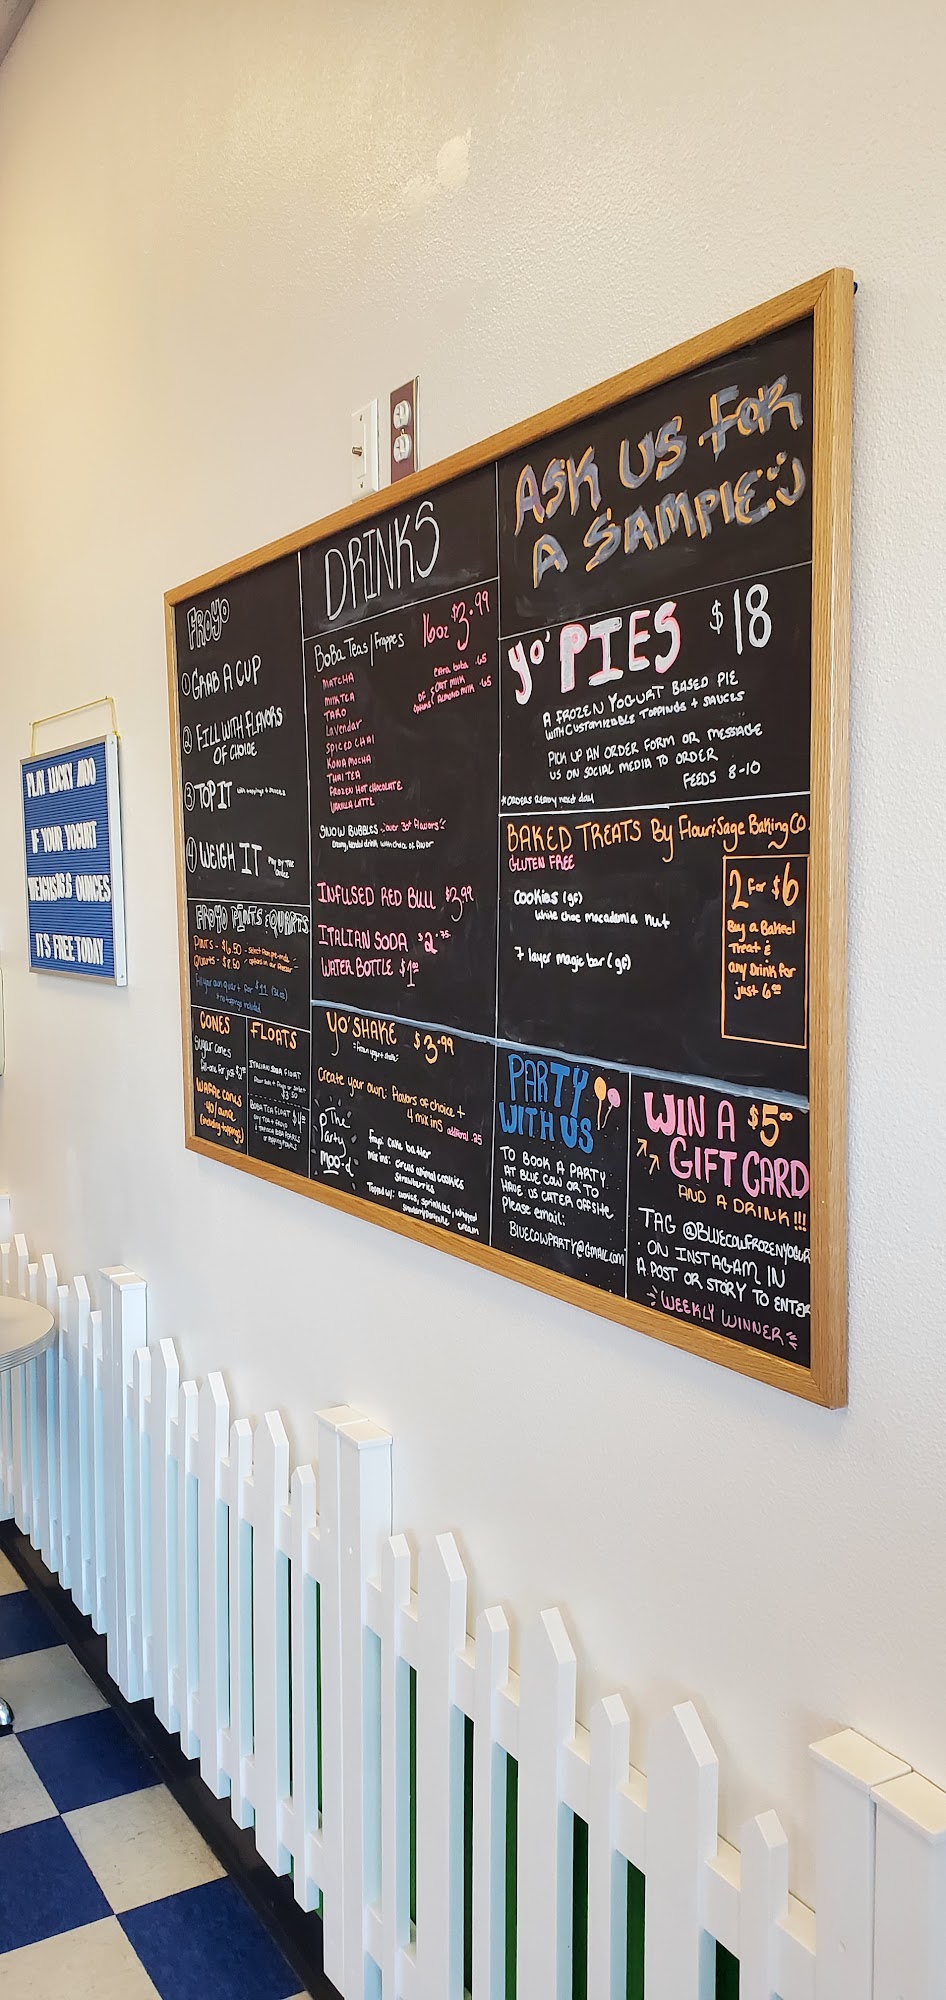 PLAY LUCKY MOO
IF YOUR YOGURT
OUNCES
IT'S FREE TODAY
FROYO
① GRAB A CUP
② FILL WITH FLAVORS
OF CHOICE
③ TOP IT with toppings & sauces
④ WEIGH IT Pay by the
ounce
FROYO PINTS & QUARTS
PINTS - $6.50 - select from pre-made
QUARTS - $8.50 - options in our freezer
Fill your own quart for $11 (32oz)
* no toppings included
CONES
Sugar cones
WAFFLE CONES
.40/ounce
(including toppings)
FLOATS
ITALIAN SODA FLOAT
$3.50
BOBA TEA FLOAT
DRINKS
BOBA TEAS / Frappes 16oz $3.99
MATCHA
MILK TEA
TARO
Lavendar
SPICED CHAI
KONA MOCHA
THAI TEA
FROZEN HOT CHOCOLATE
VANILLA LATTE
Extra boba .65
DF OAT MILK
options ALMOND MILK .65
SNOW BUBBLES - over 30+ flavors
Creamy, blended drink with choice of flavor
INFUSED RED BULL $3.99
ITALIAN SODA $2.75
WATER BOTTLE $1
YO'SHAKE $3.99
- frozen yogurt shake -
Create your own: flavors of choice +
4 mix ins additional .25
The
Party
moo-d
froyo: cake batter
mix ins: circus animal cookies
strawberries
Topped w/: cookies, sprinkles, whipped
cream
ASK US FOR
A SAMPLE
YO' PIES $18
A FROZEN YOGURT BASED PIE
WITH CUSTOMIZABLE TOPPINGS + SAUCES
PICK UP AN ORDER FORM OR MESSAGE
US ON SOCIAL MEDIA TO ORDER
FEEDS 8-10
*ORDERS READY next day
BAKED TREATS By Flour&Sage Baking CO.
GLUTEN FREE
Cookies (gf)
White choc macadamia nut
7 layer magic bar (gf)
2 for $6
Buy a Baked
Treat &
any Drink for
just 6.00
PARTY
WITH US
TO BOOK A PARTY
AT BLUE COW OR TO
HAVE US CATER OFFSITE
Please email:
BLUECOWPARTY@GMAIL.COM
WIN A $5.00
GIFT CARD
AND A DRINK!!!
TAG @BLUECOWFROZENYOGURT
ON INSTAGAM IN
A POST OR STORY TO ENTER
WEEKLY WINNER